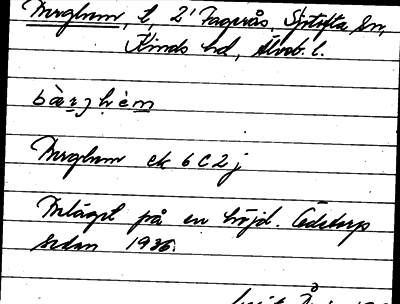 Berghem, t, 2' Fagerås, Sjötofta sn,
Kinds hd, Älvsb. l.
bæ̀rjhèm
Berghem ek 6 C 2 j
Beläget på en höjd. Ödetorp
sedan 1936.